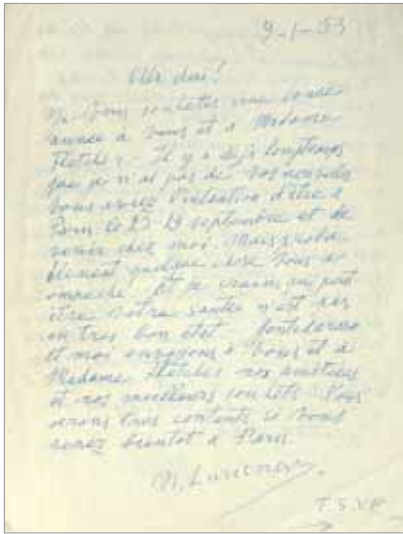 9-1-53
Cher ami!
Je vous souhaite une bonne
année à vous et à Madame
Fletcher. Il y a déjà longtemps
que je n'ai pas de vos nouvelles
vous aviez l'intention d'être à
Paris le 23 24 septembre et de
venir chez moi. Mais proba-
blement quelque chose vous a
empêché. Et je crains que peut
être votre santé n'est pas
en très bon état.
et moi envoyons à vous et à
Madame Fletcher nos amitiés
et nos meilleurs souhaits. Nous
serons très contents si vous
venez bientôt à Paris.
M.
T.S.V.P.